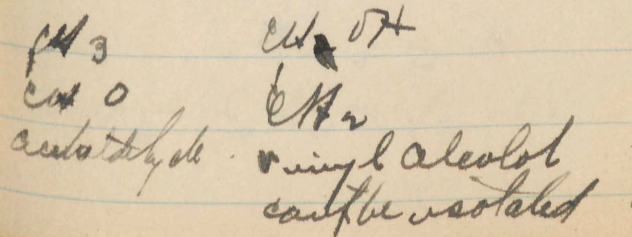 CH3
CHO
acetaldehyde.
CH2OH
CH2
vinyl alcohol
can't be isolated